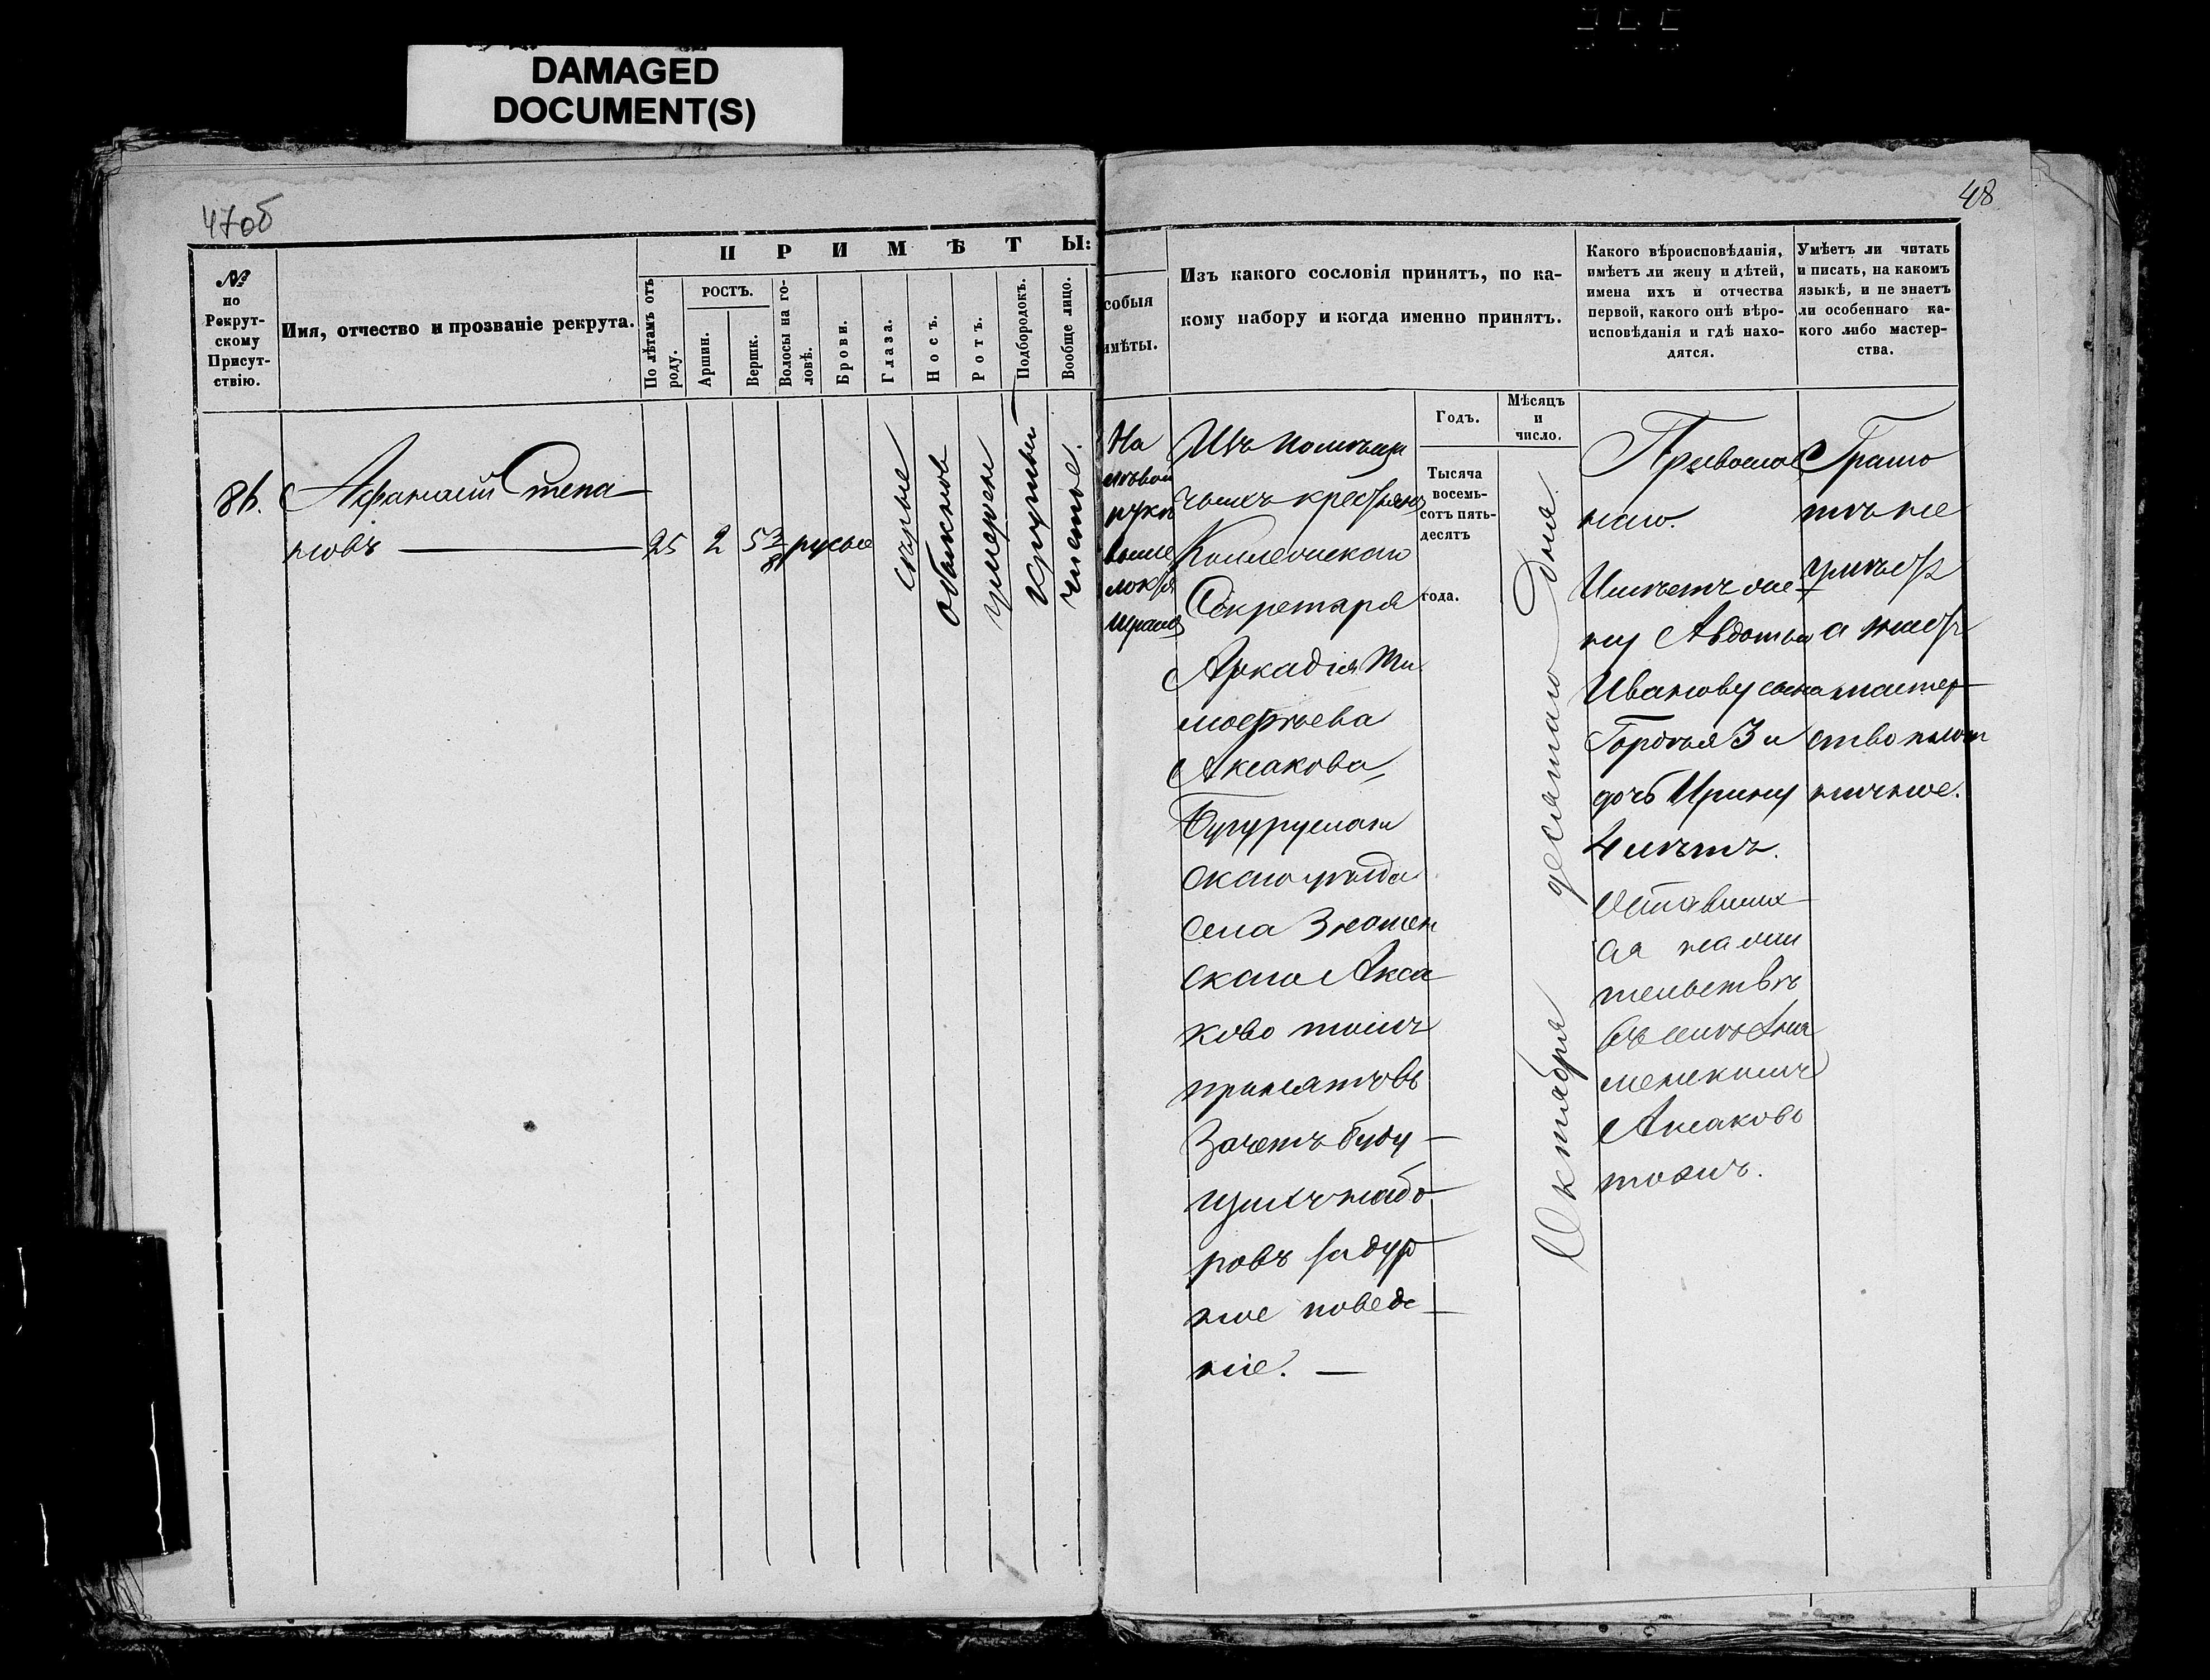 DAMAGED
DOCUMENT(S)
47об
48
№
по
Рекрут-
скому
Присут-
ствію.
Имя, отчество и прозваніе рекрута.
ПРИМѢТЫ:
По лѣтамъ отъ
роду.
РОСТЪ.
Аршин.
Вершк.
Волосы на го-
ловѣ.
Брови.
Глаза.
Носъ.
Ротъ.
Подбородокъ.
Вообще лицо.
собыя
имѣты.
Изъ какого сословія принятъ, по ка-
кому набору и когда именно принятъ.
Годъ.
Мѣсяцъ
и
число.
Какого вѣроисповѣданія,
имѣетъ ли жену и дѣтей,
имена ихъ и отчества
первой, какого онѣ вѣро-
исповѣданія и гдѣ нахо-
дятся.
Умѣетъ ли читать
и писать, на какомъ
языкѣ, и не знаетъ
ли особеннаго ка-
кого либо мастер-
ства.
86.
Афанасій Степа
новъ
25
2
5 3/8
русые
сѣрые
обыкнов
умѣрен
круглый
чистое.
На
лѣвой
рукѣ
выше
локтя
шрамъ
Изъ помѣщи
чьихъ крестьянъ
Коллежскаго
Секретаря
Аркадія Ти
мофѣева
Аксакова
Бугуруслан
скаго уѣзда
села Знамен
скаго Акса
ково тожъ
принятъ въ
Зачетъ буду
щихъ набо
ровъ за дур
ное поведе
ніе.
Тысяча
восемь-
сотъ пять-
десятъ
года.
Октября десятаго дня.
Православ
наго.
Имѣетъ же
ну Авдотью
Иванову сына
Гордѣя 3 и
дочь Ирину
4 лѣтъ.
Оставших
ся на жи
тельствѣ
въ селѣ Зна
менскомъ
Аксаково
тожъ.
Грамо
тѣ не
умѣетъ
а знаетъ
мастер
ство плот
ничное.